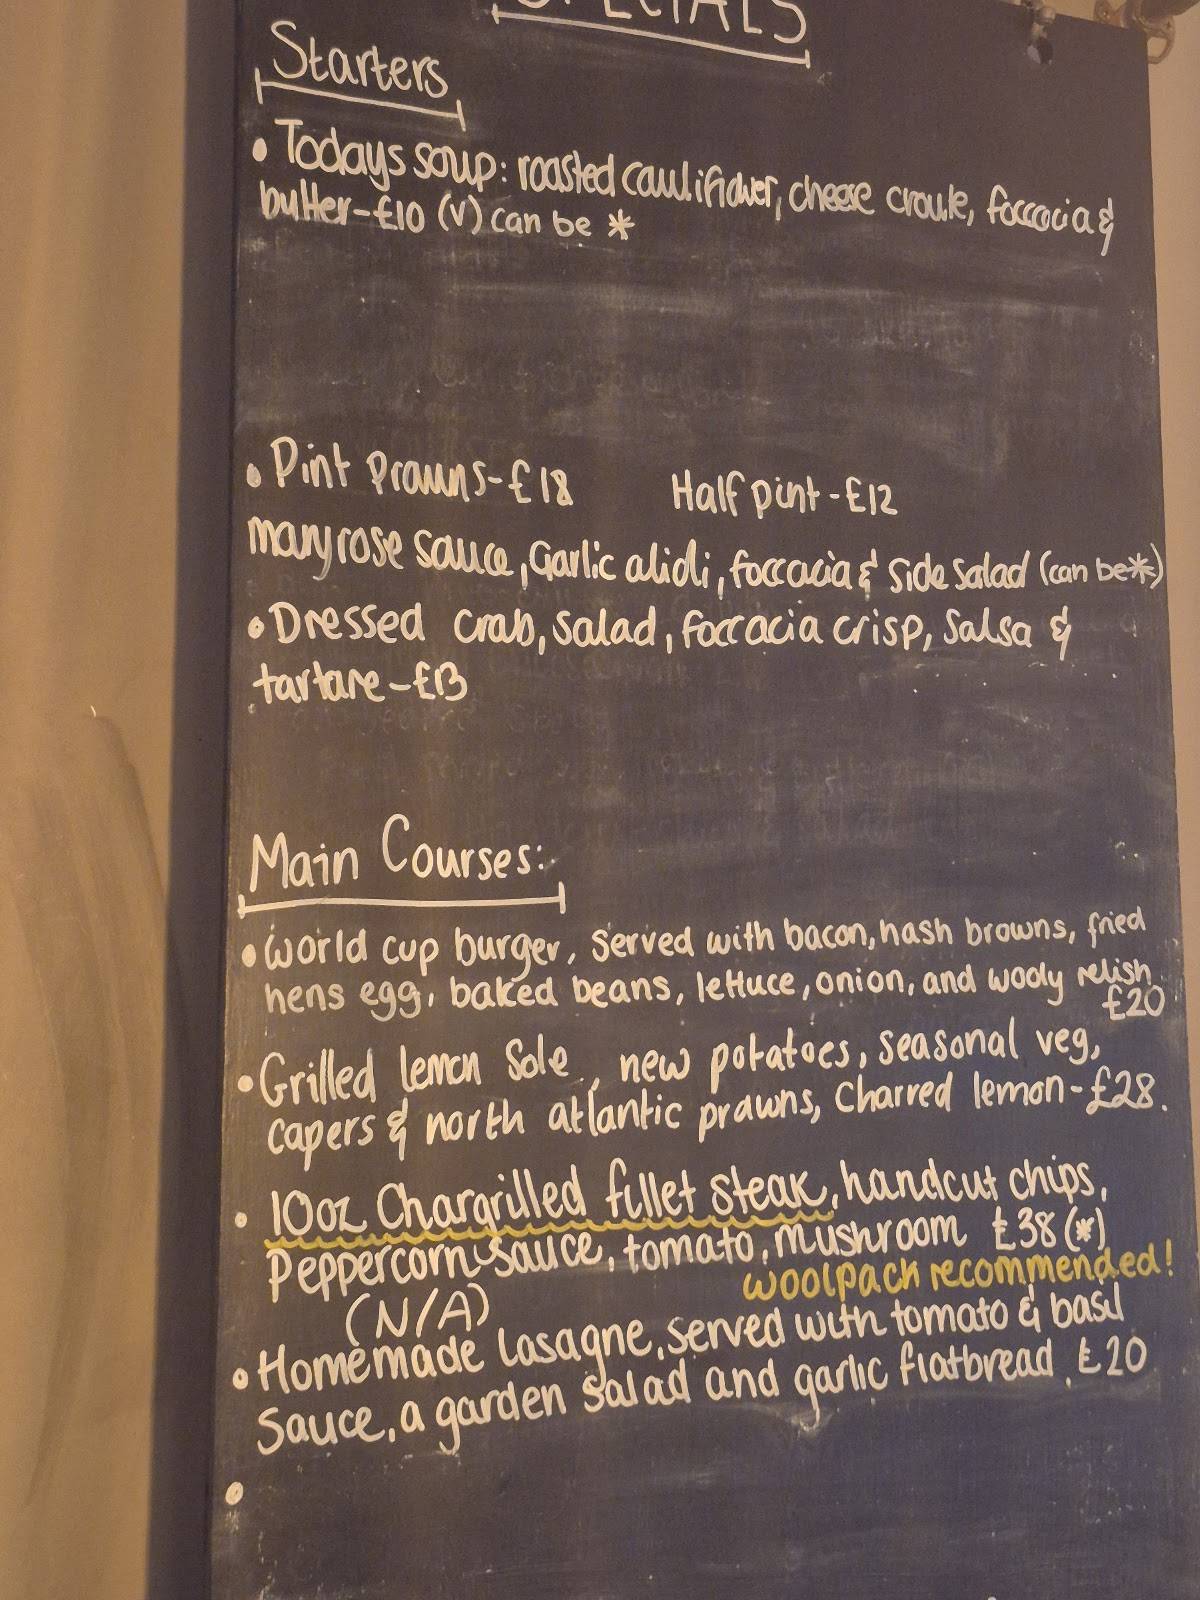 SPECIALS
Starters
• Todays soup: roasted cauliflower, cheese croute, foccocia &
butter-£10 (v) can be *
• Pint Prawns-£18 Half pint-£12
maryrose sauce, Garlic alioli, foccacia & side salad (can be*)
• Dressed crab, salad, foccacia crisp, salsa &
tartare-£13
Main Courses:
• World cup burger, served with bacon, hash browns, fried
hens egg, baked beans, lettuce, onion, and wooly relish
£20
• Grilled lemon sole, new potatoes, seasonal veg,
capers & north atlantic prawns, charred lemon-£28.
• 10oz Chargrilled fillet steak, handcut chips,
Peppercorn sauce, tomato, mushroom £38 (*)
woolpack recommended!
(N/A)
• Homemade lasagne, served with tomato & basil
sauce, a garden salad and garlic flatbread £20
•